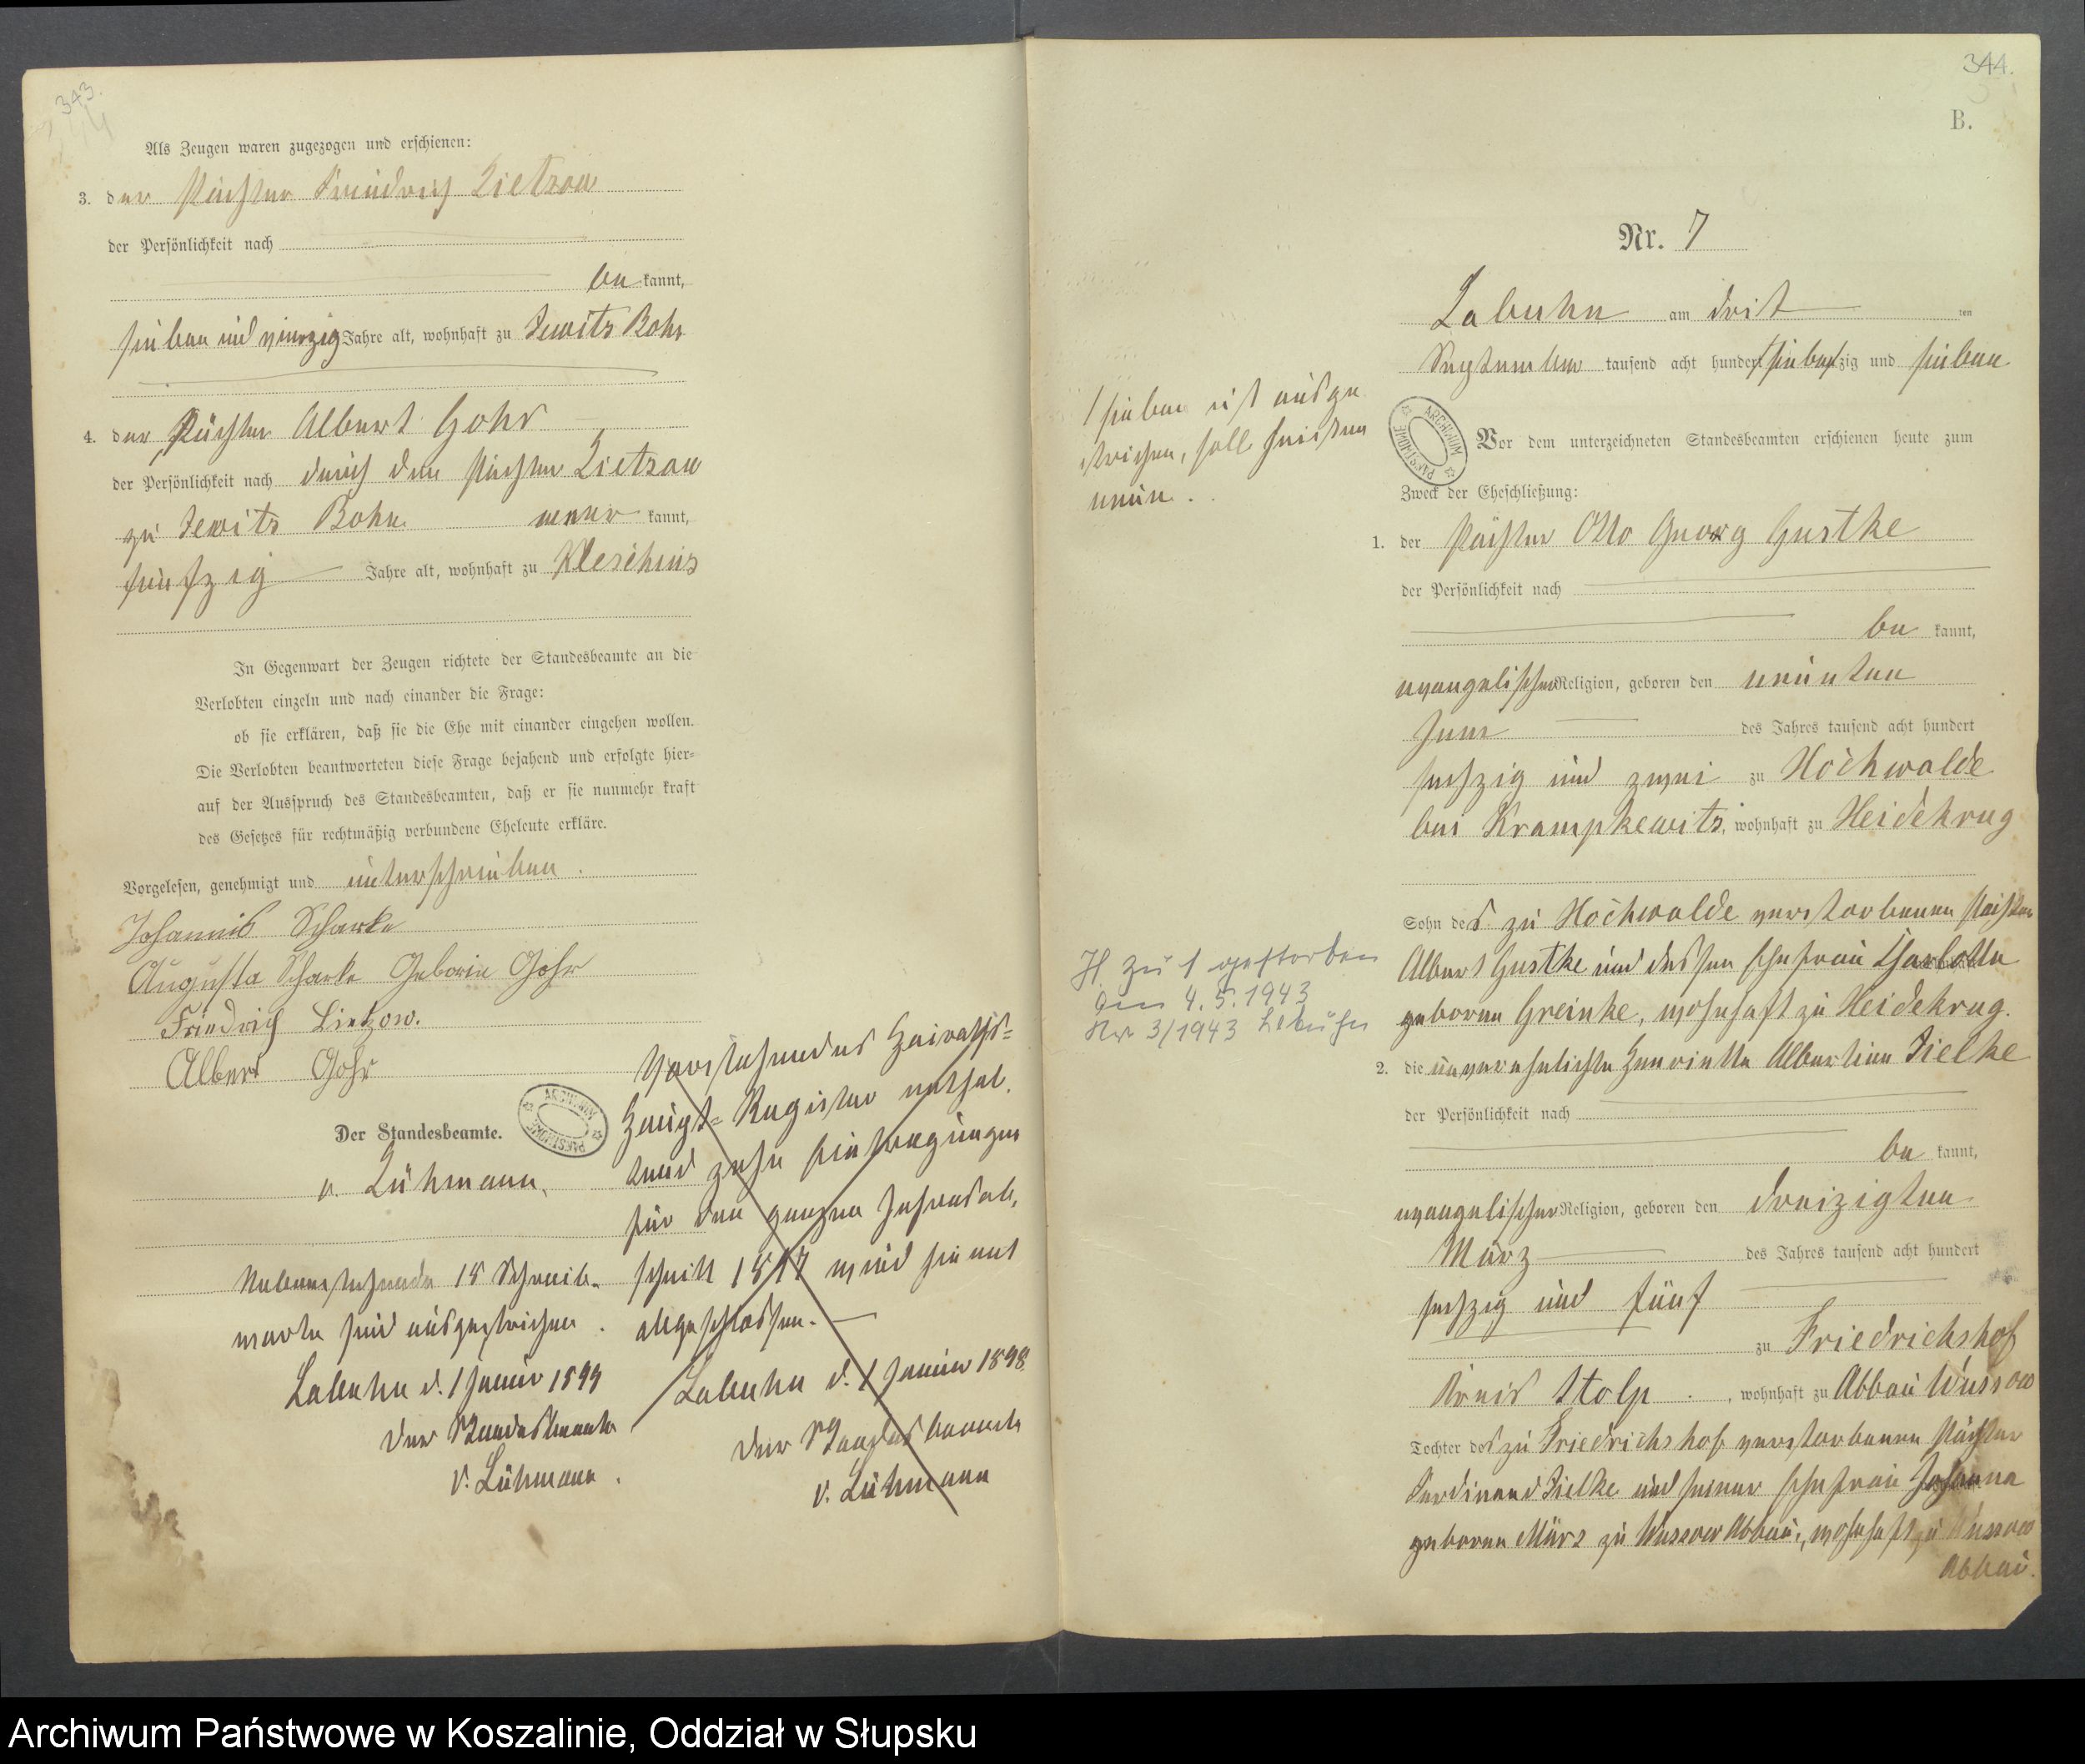 343.
Als Zeugen waren zugezogen und erschienen:
3. der Pächter Friedrich Lietzow
der Persönlichkeit nach
be kannt,
sieben und vierzig Jahre alt, wohnhaft zu Zewitz Bohn
4. der Pächter Albert Gohr
der Persönlichkeit nach durch den Pächter Lietzow
zu Zewitz Bohn aner kannt,
fünfzig Jahre alt, wohnhaft zu Kleschinz
In Gegenwart der Zeugen richtete der Standesbeamte an die
Verlobten einzeln und nach einander die Frage:
ob sie erklären, daß sie die Ehe mit einander eingehen wollen.
Die Verlobten beantworteten diese Frage bejahend und erfolgte hier-
auf der Ausspruch des Standesbeamten, daß er sie nunmehr kraft
des Gesetzes für rechtmäßig verbundene Eheleute erkläre.
Vorgelesen, genehmigt und unterschrieben.
Johannis Scharke
Augusta Scharke Geborin Gohr
Friedrich Lietzow.
Albert Gohr
Der Standesbeamte.
v. Lühmann.
ARCHIWUM PAŃSTWOWE
Nebenstehende 18 Schreib-
worte sind ausgestrichen.
Labuhn d. 1 Januar 1899
Der Standesbeamte
v. Lühmann.
Vorstehendes Heiraths-
Haupt-Register enthal-
tend zehn Eintragungen
für den ganzen Jahresab-
schnitt 1897 wird hiermit
abgeschlossen.
Labuhn d. 1 Januar 1898
Der Standesbeamte
v. Lühmann
344.
B.
Nr. 7
Labuhn am dritt ten
September tausend acht hundert sieben zig und sieben
/ sieben ist ausge
strichen, soll heißen
neun.
ARCHIWUM PAŃSTWOWE
Vor dem unterzeichneten Standesbeamten erschienen heute zum
Zweck der Eheschließung:
1. der Pächter Otto Georg Gustke
der Persönlichkeit nach
be kannt,
evangelischer Religion, geboren den neunten
Juni des Jahres tausend acht hundert
sechzig und zwei zu Hochwalde
bei Krampkewitz, wohnhaft zu Heidekrug
Sohn des zu Hochwalde verstorbenen Pächter
Albert Gustke und dessen Ehefrau Charlotte
geborne Greinke, wohnhaft zu Heidekrug.
H. zu 1 gestorben
den 4.5.1943
Nr 3/1943 Labuhn
2. die unverehelichte Henriette Albertine Zielke
der Persönlichkeit nach
be kannt,
evangelischer Religion, geboren den dreizigten
März des Jahres tausend acht hundert
sechzig und fünf
zu Friedrichshof
Kreis Stolp, wohnhaft zu Abbau Wussow
Tochter des zu Friedrichshof verstorbenen Pächter
Ferdinand Zielke und seiner Ehefrau Johanna
geborne März zu Wussow Abbau, wohnhaft zu Wussow
Abbau.
Archiwum Państwowe w Koszalinie, Oddział w Słupsku